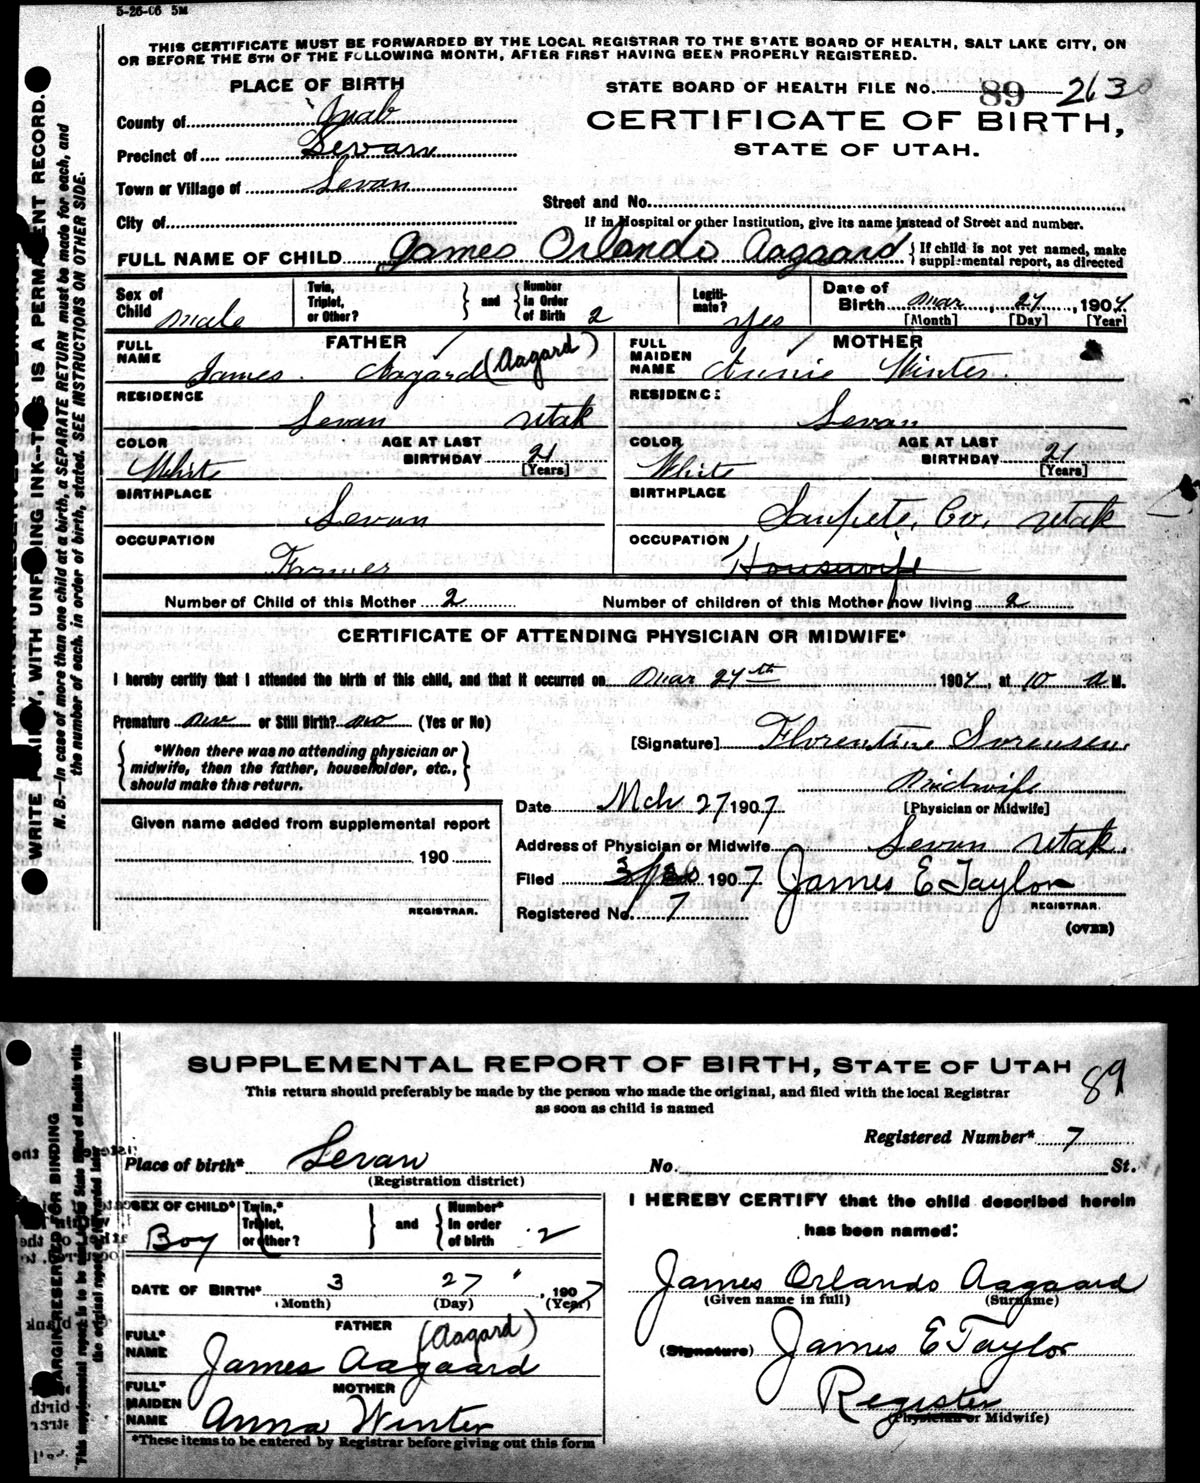 5-26-06 5M
THIS CERTIFICATE MUST BE FORWARDED BY THE LOCAL REGISTRAR TO THE STATE BOARD OF HEALTH, SALT LAKE CITY, ON
OR BEFORE THE 5TH OF THE FOLLOWING MONTH, AFTER FIRST HAVING BEEN PROPERLY REGISTERED.
PLACE OF BIRTH
STATE BOARD OF HEALTH FILE No. 89 263
County of Juab
CERTIFICATE OF BIRTH,
Precinct of Levan
STATE OF UTAH.
Town or Village of Levan
Street and No.
City of
If in Hospital or other Institution, give its name instead of Street and number.
FULL NAME OF CHILD James Orlando Aagaard
If child is not yet named, make
supplemental report, as directed
Sex of Child Male
Twin, Triplet, or Other? and Number in Order of Birth 2
Legitimate? Yes
Date of Birth Mar, 27, 1907
[Month] [Day] [Year]
FATHER
MOTHER
FULL NAME James Aagard (Aagard)
FULL MAIDEN NAME Annie Winter
RESIDENCE Levan Utah
RESIDENCE Levan
COLOR White AGE AT LAST BIRTHDAY 21 [Years]
COLOR White AGE AT LAST BIRTHDAY 21 [Years]
BIRTHPLACE Levan
BIRTHPLACE Sanpete, Co, Utah
OCCUPATION Farmer
OCCUPATION Housewife
Number of Child of this Mother 2 Number of children of this Mother now living 2
CERTIFICATE OF ATTENDING PHYSICIAN OR MIDWIFE*
I hereby certify that I attended the birth of this child, and that it occurred on Mar 27th 1907, at 10 A M.
Premature or Still Birth? no (Yes or No)
[Signature] Florentine Sorensen
*When there was no attending physician or
midwife, then the father, householder, etc.,
should make this return.
Midwife
[Physician or Midwife]
Date Mch 27 1907
Given name added from supplemental report
190
REGISTRAR.
Address of Physician or Midwife Levan Utah.
Filed 1907 James E Taylor
REGISTRAR.
Registered No. 7
(OVER)
WRITE PLAINLY, WITH UNFADING INK--THIS IS A PERMANENT RECORD.
N. B.—In case of more than one child at a birth, a SEPARATE RETURN must be made for each, and
the number of each, in order of birth, stated. SEE INSTRUCTIONS ON OTHER SIDE.
SUPPLEMENTAL REPORT OF BIRTH, STATE OF UTAH
89
This return should preferably be made by the person who made the original, and filed with the local Registrar
as soon as child is named
Registered Number* 7
Place of birth* Levan No. St.
(Registration district)
SEX OF CHILD* Boy
Twin,* Triplet, or other? and Number* in order of birth 2
I HEREBY CERTIFY that the child described herein
has been named:
DATE OF BIRTH* 3 27 , 1907
(Month) (Day) (Year)
James Orlando Aagaard
(Given name in full) (Surname)
FATHER
FULL* NAME James Aagaard (Aagard)
(Signature) James E Taylor
MOTHER
FULL* MAIDEN NAME Anna Winter
Register
(Physician or Midwife)
*These items to be entered by Registrar before giving out this form
MARGIN RESERVED FOR BINDING